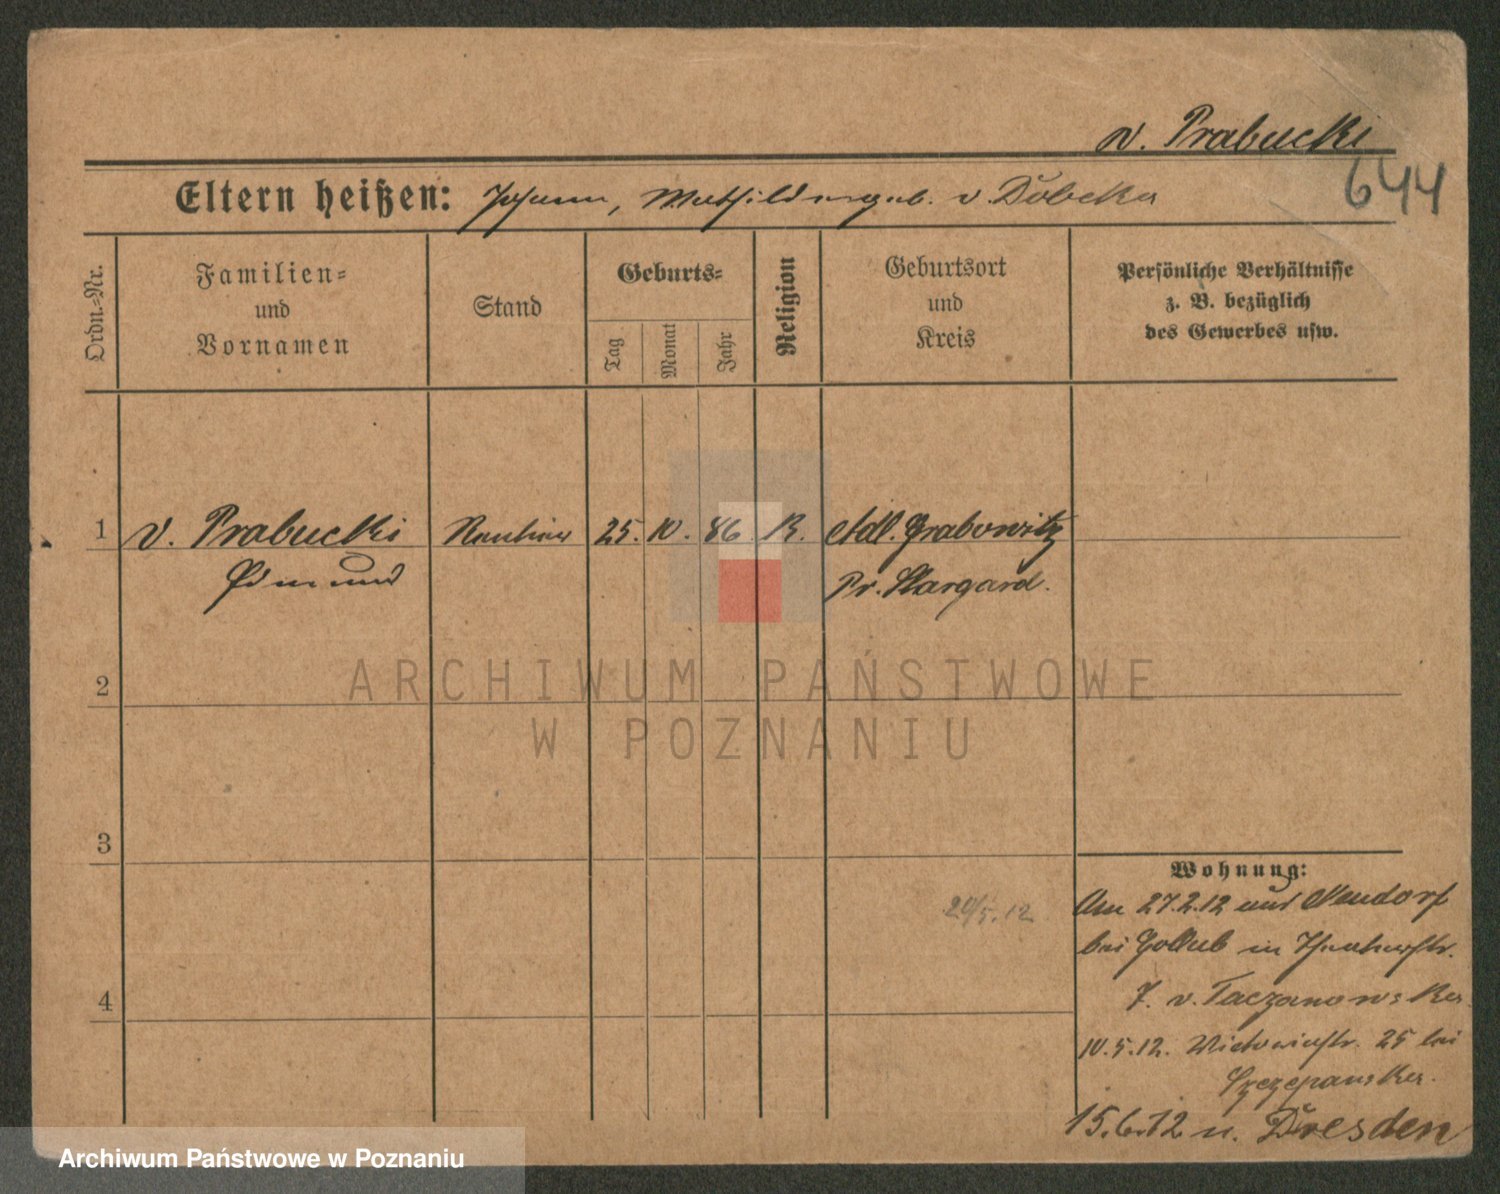 v. Prabucki
644
Eltern heißen: Johann, Mathilde geb. v. Dobcka
Ordn.-Nr.
Familien-
und
Vornamen
Stand
Geburts-
Tag
Monat
Jahr
Religion
Geburtsort
und
Kreis
Persönliche Verhältnisse
z. B. bezüglich
des Gewerbes usw.
1 v. Prabucki Rentier 25. 10. 86. K. Adl. Grabowitz
Edmund Pr. Stargard.
2
ARCHIWUM PAŃSTWOWE
W POZNANIU
3
Wohnung:
24/5.12
Am 27.2.12 aus Neudorf
bei Gollub in Theaterstr.
7. v. Taczanowska
4
10.5.12. Victoriastr. 25 bei
Szczepanska.
15.6.12 n. Dresden
Archiwum Państwowe w Poznaniu